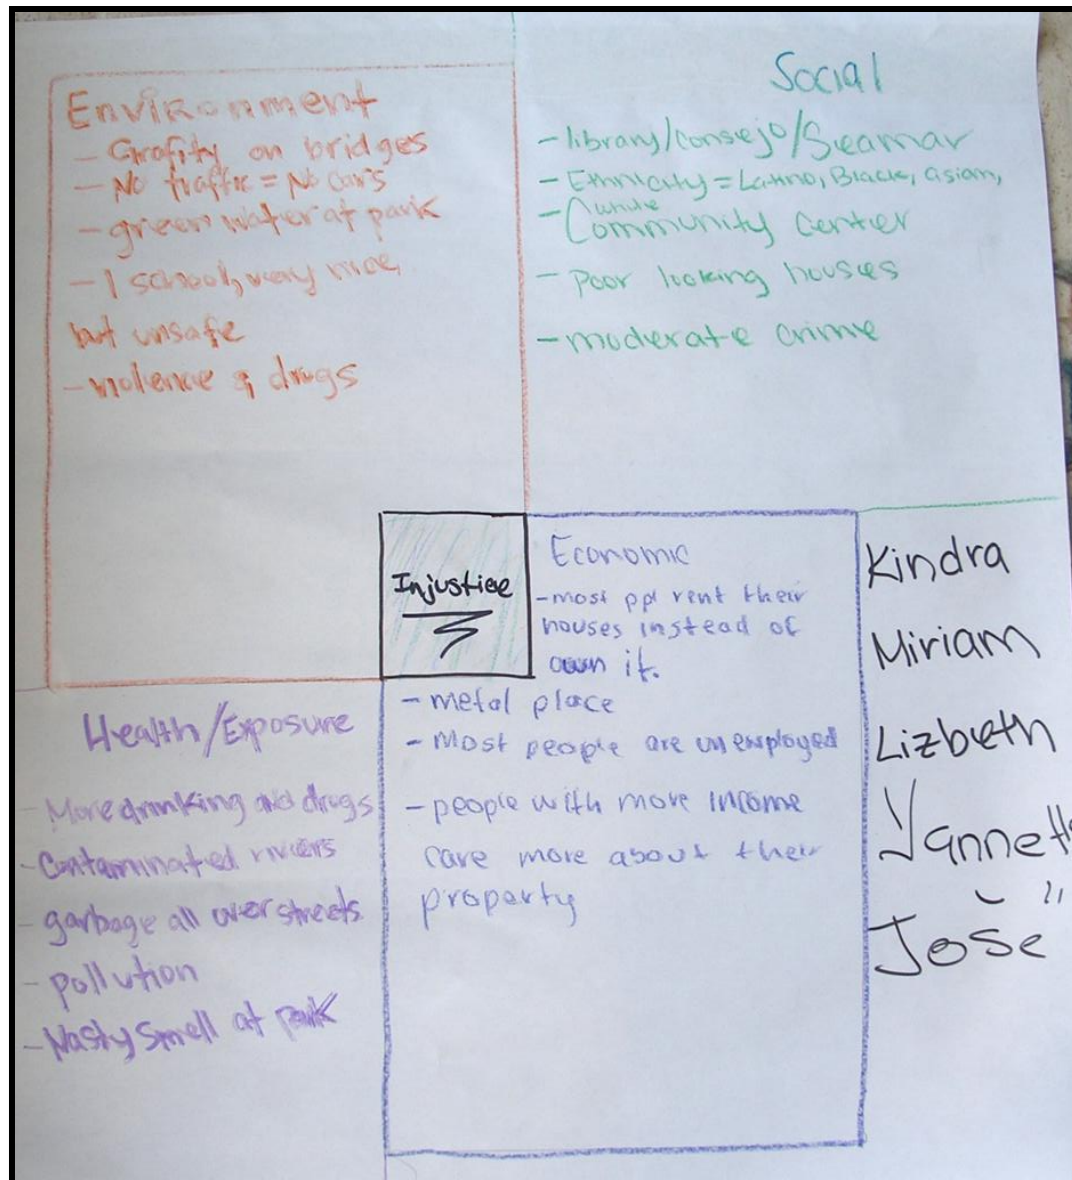 Environment
- Grafity on bridges
- No traffic = No cars
- green water at park
- 1 school, very nice,
but unsafe
- violence & drugs
Social
- library/consejo/Seamar
- Ethnicity = Latino, Black, asian,
white
- Community Center
- Poor looking houses
- moderate crime
Injustice
Economic
- most ppl rent their
houses instead of
own it.
- metal place
- Most people are unemployed
- people with more income
care more about their
property
Health/Exposure
- More drinking and drugs
- Contaminated rivers
- garbage all over streets
- pollution
- Nasty smell at park
Kindra
Miriam
Lizbeth
Jose